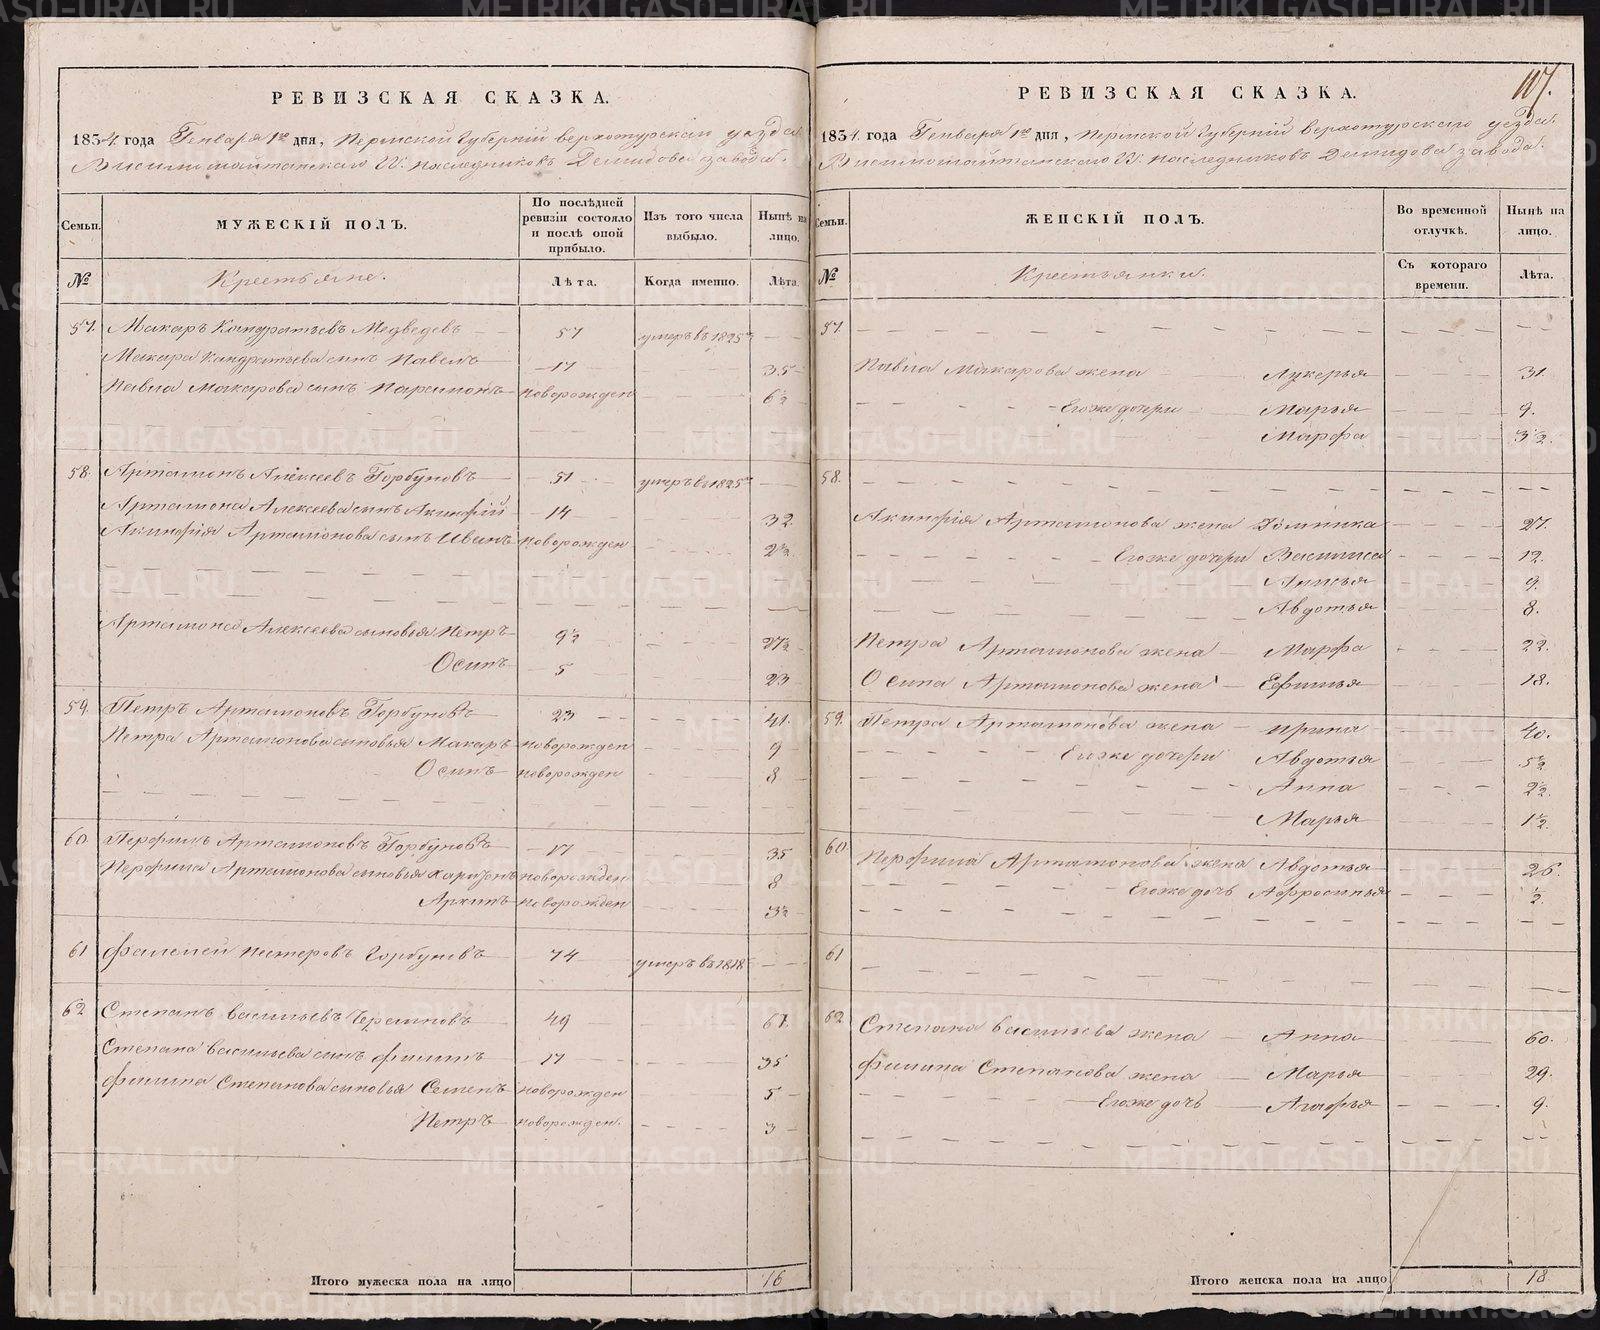 РЕВИЗСКАЯ СКАЗКА.
1834. года Генваря 1го дня, Пермской Губерніи верхотурскаго уезда
Висимошайтанскаго Гг. наследниковъ Демидова завода.
Семьи.
МУЖЕСКІЙ ПОЛЪ.
По послѣдней ревизіи состояло и послѣ оной прибыло.
Изъ того числа выбыло.
Нынѣ на лицо.
№
Крестьяне.
Лѣта.
Когда именно.
Лѣта.
57. Макаръ Кандратьевъ Медведевъ 57 умеръ въ 1825мъ
Макара Кандратьева сынъ Павелъ 17 35
Павла Макарова сынъ Парамонъ новорожден 6½
58. Артамонъ Алексеевъ Горбуновъ 51 умеръ въ 1825мъ
Артамона Алексеева сынъ Акинфій 14 32
Акинфія Артамонова сынъ Иванъ новорожден 2½
Артамона Алексеева сыновья Петръ 9½ 27½
Осипъ 5 23
59. Петръ Артамоновъ Горбуновъ 23 41.
Петра Артамонова сыновья Макаръ новорожден 9
Осипъ новорожден 8
60. Перфилъ Артамоновъ Горбуновъ 17 35
Перфила Артамонова сыновья Харитонъ новорожден 8
Архипъ новорожден 3½
61 Фалелей Нестеровъ Горбуновъ 74 умеръ въ 1818
62 Степанъ Васильевъ Черемновъ 49 67.
Степана Васильева сынъ Филипъ 17 35
Филипа Степанова сыновья Семенъ новорожден 5
Петръ новорожден. 3
Итого мужеска пола на лицо 16
117.
РЕВИЗСКАЯ СКАЗКА.
1834. года Генваря 1го дня, Пермской Губерніи верхотурскаго уезда.
Висимошайтанскаго Гг. наследниковъ Демидова завода.
Семьи.
ЖЕНСКІЙ ПОЛЪ.
Во временной отлучкѣ.
Нынѣ на лицо.
№
Крестьянки.
Съ котораго времени.
Лѣта.
57.
Павла Макарова жена Лукерья 31.
Егоже дочери Марья 9.
Марфа 3½.
58.
Акинфія Артамонова жена Домника 27.
Егоже дочери Василиса 12.
Анисья 9.
Авдотья 8.
Петра Артамонова жена Марфа 22.
Осипа Артамонова жена Ефимья 18.
59. Петра Артамонова жена Ирина 40.
Егоже дочери Авдотья 5½
Анна 2½.
Марья 1½.
60 Перфила Артамонова жена Авдотья 26.
Егоже дочь Афросинья ½.
61
62 Степана Васильева жена Анна 60.
Филипа Степанова жена Марья 29.
Егоже дочь Агафья 9.
Итого женска пола на лицо 18.
METRIKI.GASO-URAL.RU